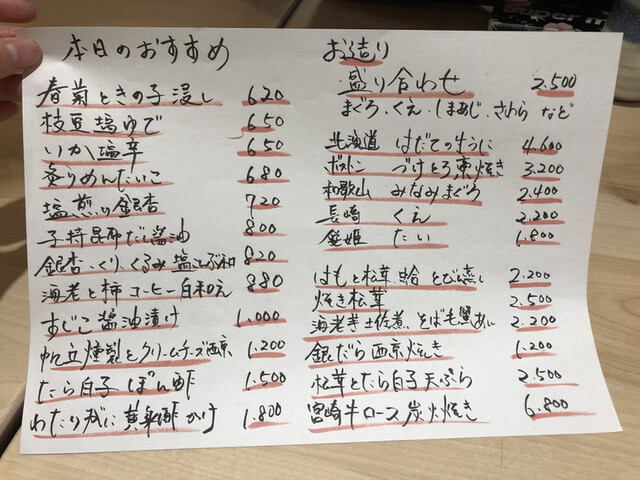 本日のおすすめ
春菊ときの子浸し 620
枝豆塩ゆで 650
いか塩辛 650
炙りめんたいこ 680
塩煎り銀杏 720
子持昆布だし醤油 800
銀杏・くり・くるみ 塩こぶ和 820
海老と柿コーヒー白和え 880
すじこ醤油漬け 1.000
帆立燻製とクリームチーズ西京 1.200
たら白子ぽん酢 1.500
わたりがに黄身酢かけ 1.800
お造り
盛り合わせ 2.500
まぐろ、くえ、しまあじ、さわら など
北海道 はだての生うに 4.600
ボストン づけとろ 焼き 3.200
和歌山 みなみまぐろ 2.400
長崎 くえ 2.200
愛媛 たい 1.800
はもと松茸、蛤 とびん蒸し 2.200
焼き松茸 2.500
海老芋土佐煮、とば毛蟹あん 2.200
銀だら西京焼き 1.200
松茸とたら白子天ぷら 2.500
宮崎牛ロース炭火焼き 6.800